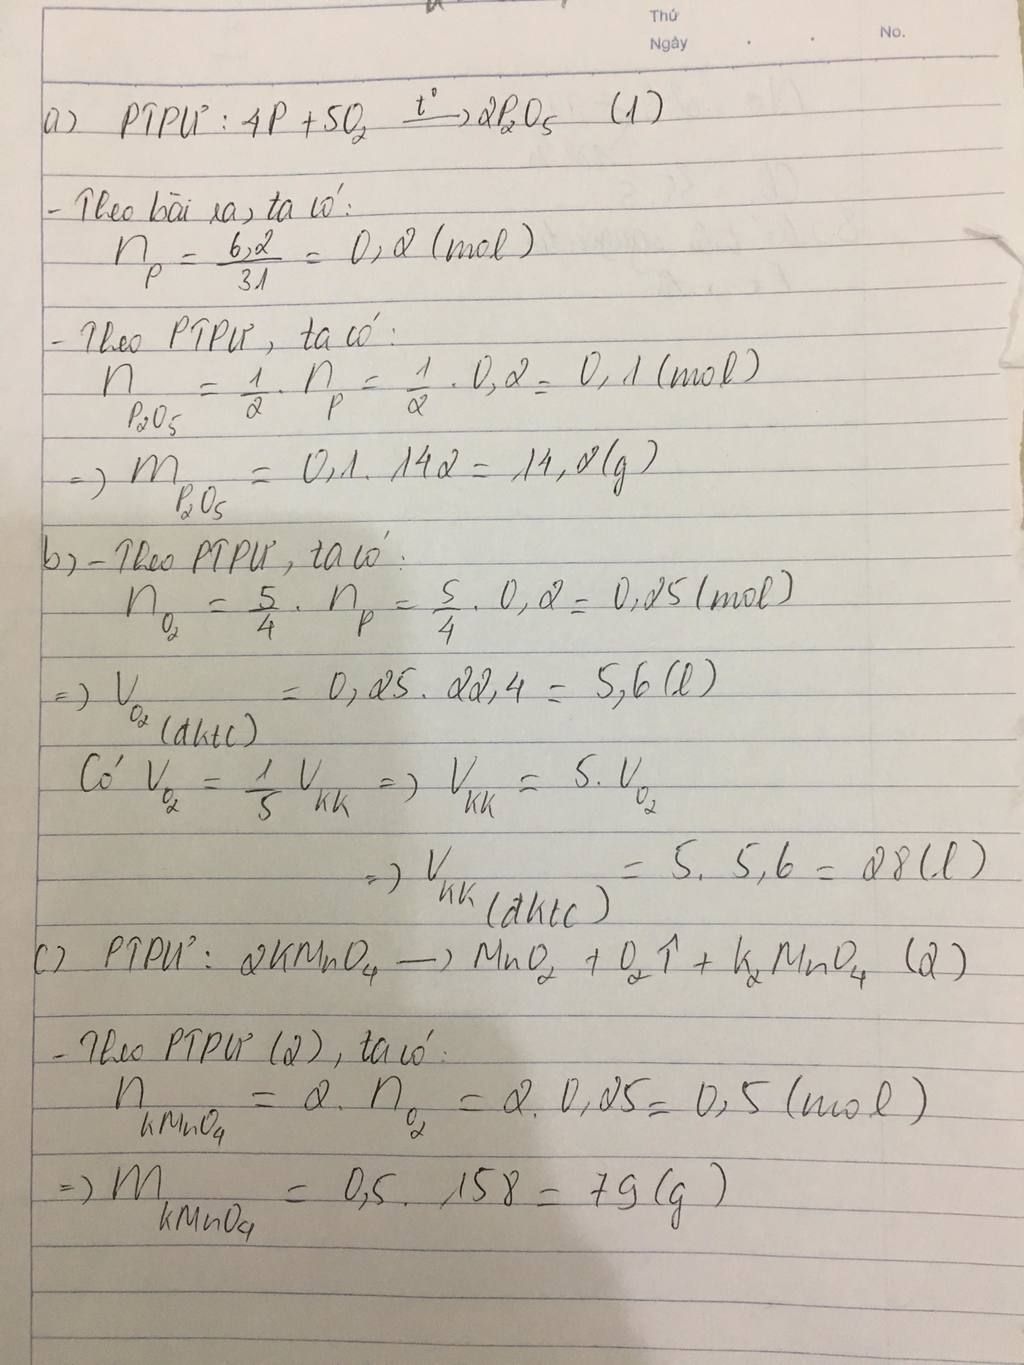 Thứ
Ngày . . No.
a) PTPƯ: 4P + 5O₂ —t°→ 2P₂O₅ (1)
- Theo bài ra, ta có:
n_P = 6,2/31 = 0,2 (mol)
- Theo PTPƯ, ta có:
n_P₂O₅ = 1/2 . n_P = 1/2 . 0,2 = 0,1 (mol)
=> m_P₂O₅ = 0,1 . 142 = 14,2 (g)
b) - Theo PTPƯ, ta có:
n_O₂ = 5/4 . n_P = 5/4 . 0,2 = 0,25 (mol)
=> V_O₂ (đktc) = 0,25 . 22,4 = 5,6 (l)
Có V_O₂ = 1/5 V_KK => V_KK = 5 . V_O₂
=> V_KK (đktc) = 5 . 5,6 = 28 (l)
c) PTPƯ: 2KMnO₄ → MnO₂ + O₂↑ + K₂MnO₄ (2)
- Theo PTPƯ (2), ta có:
n_KMnO₄ = 2 . n_O₂ = 2 . 0,25 = 0,5 (mol)
=> m_KMnO₄ = 0,5 . 158 = 79 (g)